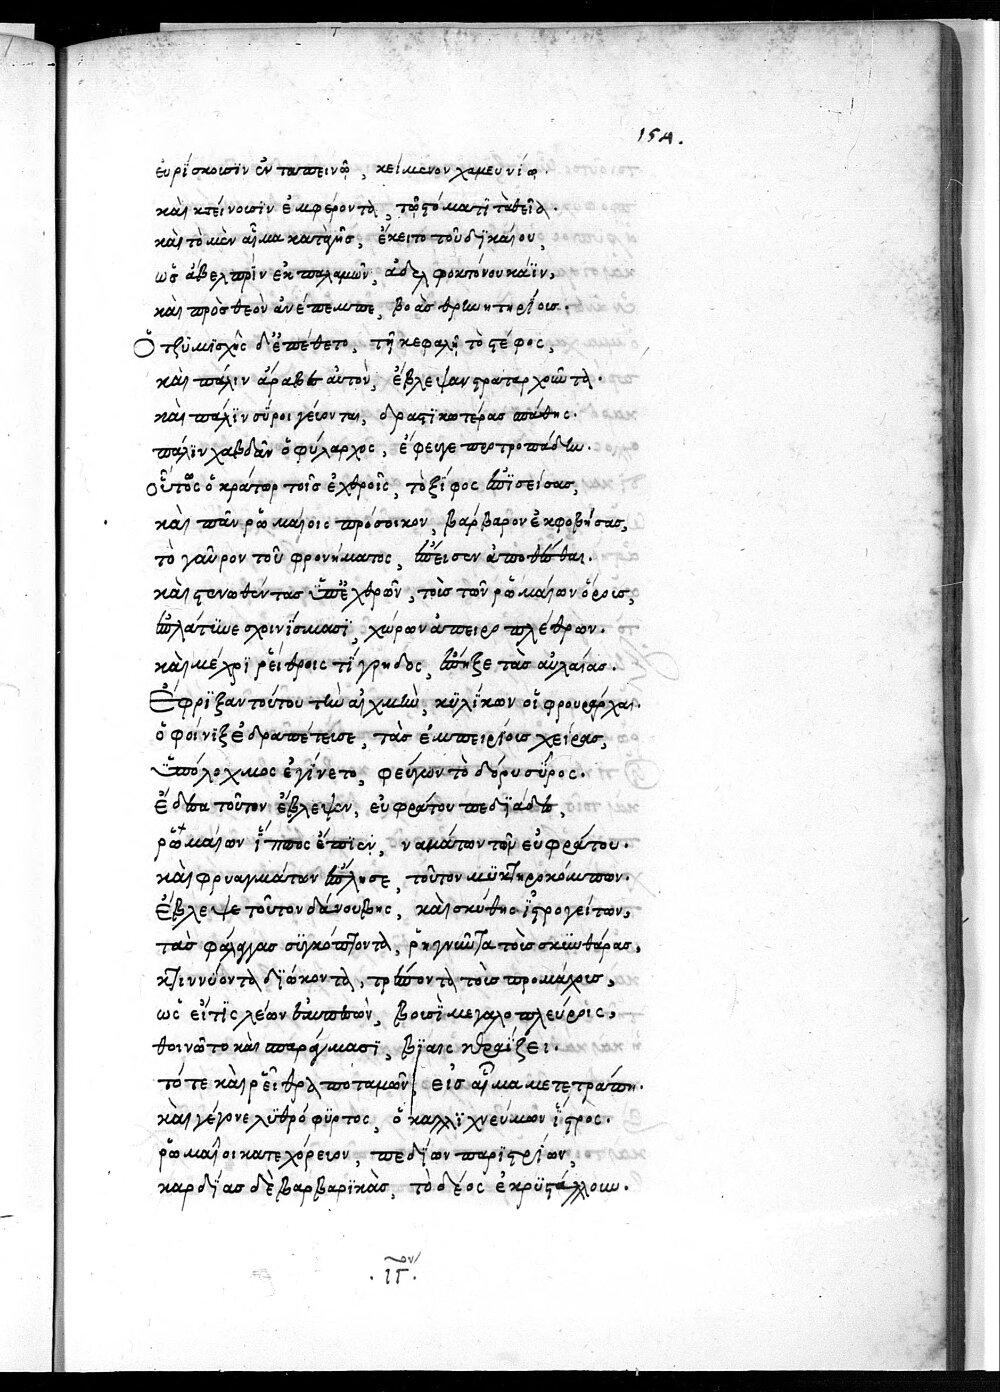 154.
εὑρίσκουσιν ἐν ταπεινῷ, κείμενον χαμευνίῳ.
καὶ κτείνουσιν ἐμφέροντα, τῷ στόματι τὰ βέλη.
καὶ τὸ μὲν αἷμα κατὰ γῆς, ἔκειτο τοῦ δικαίου,
ὡς ἄβελ πρὶν ἐκ παλαμῶν, ἀδελφοκτόνου κάϊν,
καὶ πρὸς θεὸν ἀνέπεμπε, βοὰς θρηνητηρίους.
Ὁ τζυμισχῆς δ' ἐπέθετο, τῇ κεφαλῇ τὸ στέφος,
καὶ πάλιν ἄραβες αὐτὸν, ἔβλεψαν στραταρχοῦντα.
καὶ πάλιν σύροι γείονται, δραστικωτέρας πάθης.
πάλιν χαβδᾶν ὁ φύλαρχος, ἔφευγε προτροπάδην.
οὗτος ὁ κράτωρ τοῖς ἐχθροῖς, τὸ ξίφος ἐπισείσας,
καὶ πᾶν ῥωμαίοις πρόσοικον, βάρβαρον ἐκφοβήσας,
τὸ γαῦρον τοῦ φρονήματος, ἔπεισεν ἀποθέσθαι.
καὶ στενωθέντας ὑπ' ἐχθρῶν, τοὺς τῶν ῥωμαίων ὅρους,
ἐπλάτυνε σχοινίσμασι, χώρων ἀπείρων πλέθρων.
καὶ μέχρι ῥείθροις τίγρηδος, ἔπηξε τὰς αὐλαίας.
Ἔφριξαν τούτου τὴν αἰχμὴν, κυλίκων οἱ φρουράρχαι.
ὁ φοίνιξ ἐδραπέτευσε, τὰς ἐμπείρους χεῖρας,
ὑπόλοχμος ἐγίνετο, φεύγων τὸ δόρυ σύρος.
ἔδεσσα τοῦτον ἔβλεψεν, εὐφράτου πεδιάδες,
ῥωμαίων ἵππος ἔπιεν, ναμάτων τῶν εὐφράτου.
καὶ φρυαγμάτων ἔπλησε, τοῦτον μυκτηροκόμπων.
ἔβλεψε τοῦτον δάνουβης, καὶ σκύθης ἰστρογείτων,
τὰς φάλαγγας συγκόπτοντα, ῥηγνῦντα τοὺς σκυθάρας,
κτιννύοντα διώκοντα, τρέποντα τοὺς προμάχους,
ὡς εἴ τις λέων ἐμπεσὼν, βουσὶ μεγαλοπλεύροις,
θοινῷτο καὶ σπαράγμασι, βίαις κεραΐζει.
τότε καὶ ῥεῖθρα ποταμῶν, εἰς αἷμα μετετράπη.
καὶ γέγονε λυθρόφυρτος, ὁ καλλιχνεύμων ἴστρος.
ῥωμαῖοι κατεχόρευον, πεδίων παριστρίων,
καρδίας δὲ βαρβαρικὰς, τὸ δέος ἐκρυστάλλου.
.ιγ^ον.